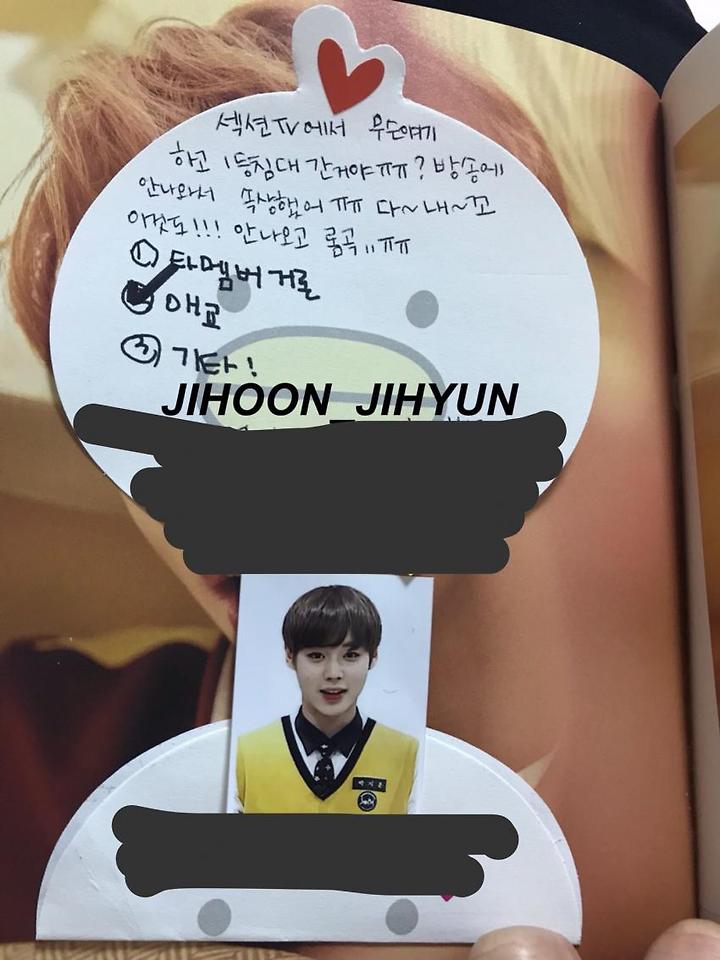 섹션TV에서 무슨얘기
하고 1등침대 간거야ㅠㅠ? 방송에
안나와서 속상했어 ㅠㅠ 다~내~꼬
이것도!!! 안나오고 롬곡,,ㅠㅠ
① 타멤버 거론
애교
③ 기타!
JIHOON_JIHYUN
박지훈